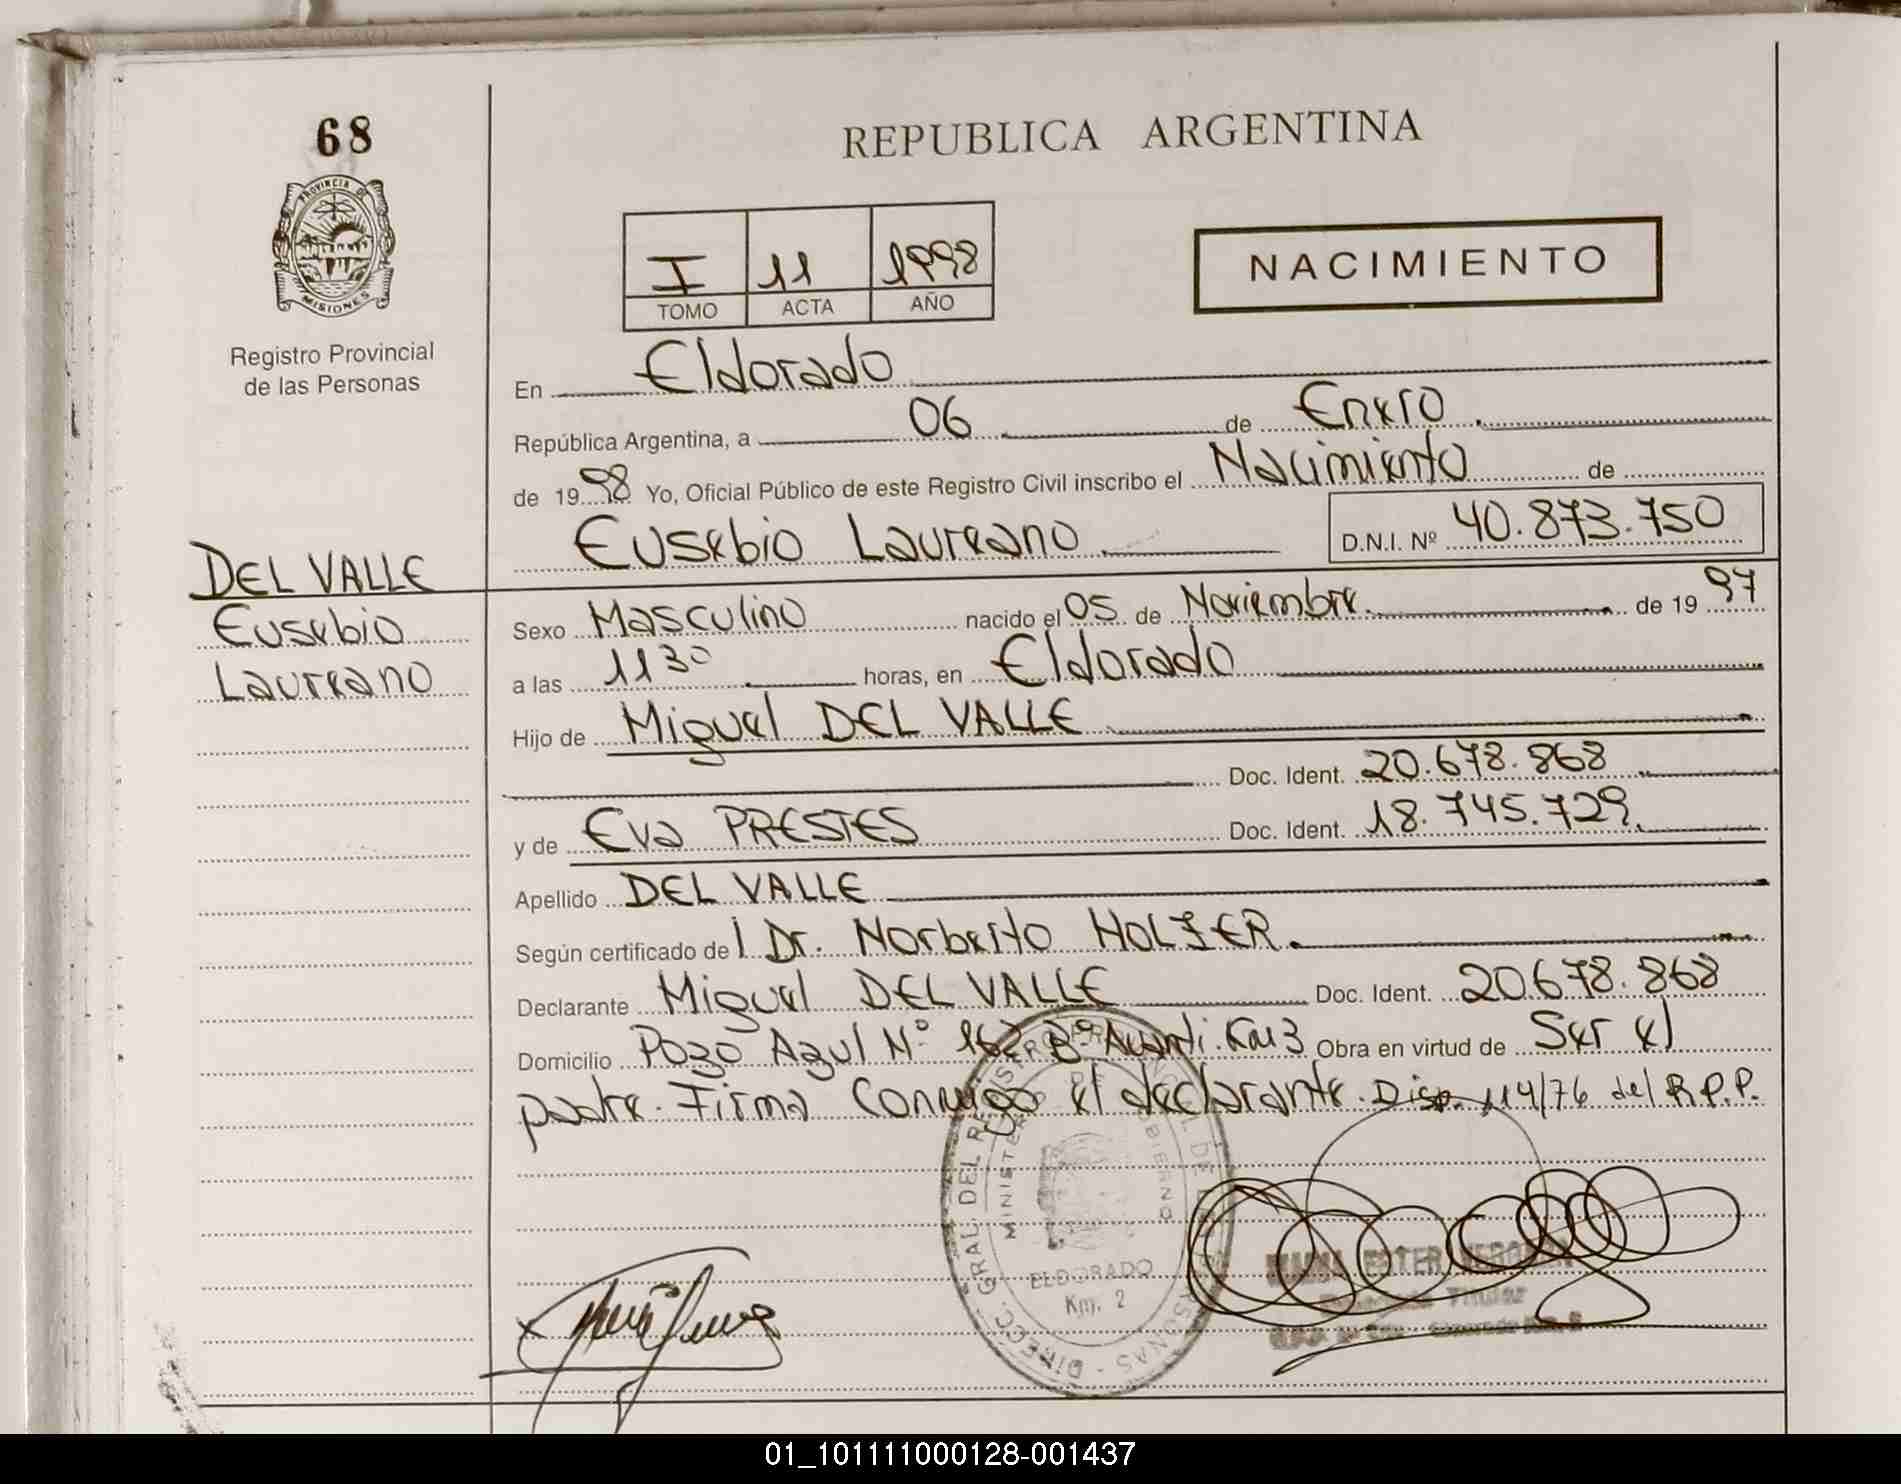 68
PROVINCIA DE
MISIONES
Registro Provincial
de las Personas
REPUBLICA ARGENTINA
I 11 1998
TOMO ACTA AÑO
NACIMIENTO
En Eldorado
República Argentina, a 06 de Enero
de 1998 Yo, Oficial Público de este Registro Civil inscribo el Nacimiento de
Eusebio Laureano D.N.I. Nº 40.873.750
DEL VALLE
Eusebio
Laureano
Sexo Masculino nacido el 05 de Noviembre de 1997
a las 11 30 horas, en Eldorado
Hijo de Miguel DEL VALLE
Doc. Ident. 20.678.868
y de Eva PRESTES Doc. Ident. 18.745.729
Apellido DEL VALLE
Según certificado del Dr. Norberto HOLZER.
Declarante Miguel DEL VALLE Doc. Ident. 20.678.868
Domicilio Pozo Azul Nº 162 Bº Km 3 Obra en virtud de Ser el
padre. Firma Conmigo el declarante. Disp. 114/76 del R.P.P.
DIRECC. GRAL DEL REGISTRO PROVINCIAL DE PERSONAS
MINISTERIO DE GOBIERNO
ELDORADO
Km. 2
ESTER
Titular
01_101111000128-001437